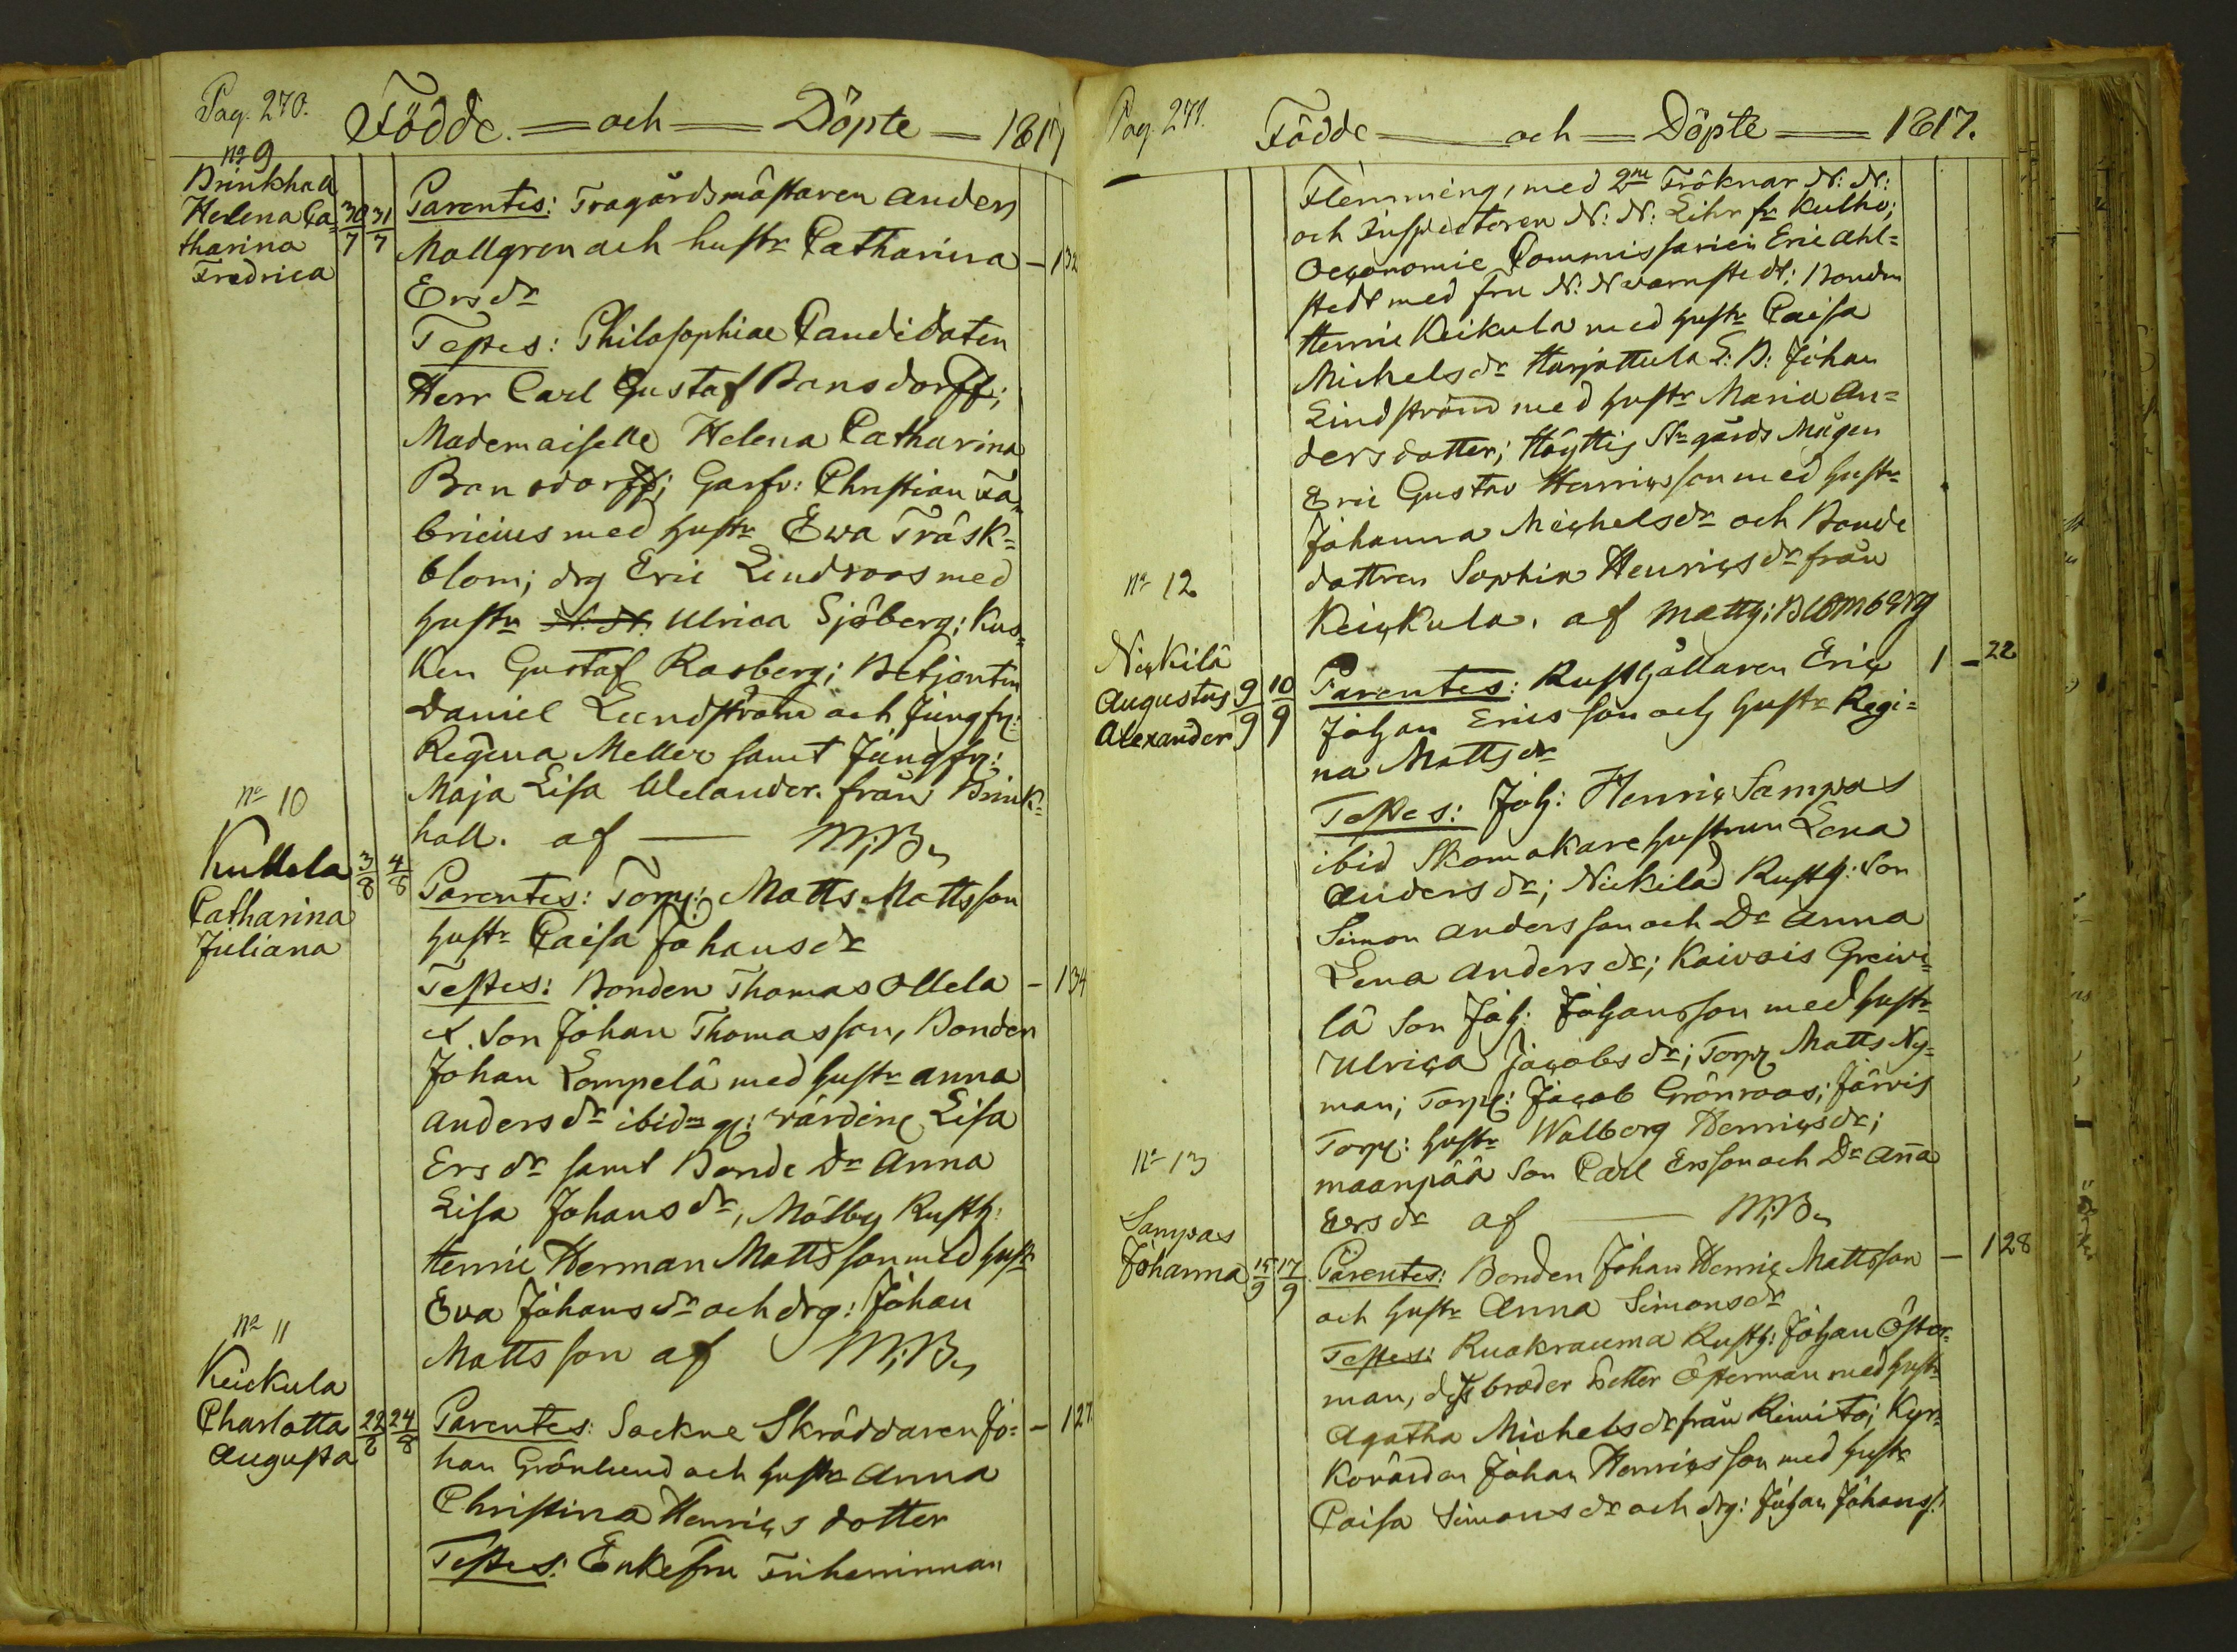 Pag. 270.
Födde. — och — Döpte — 1817
No 9
Brinkhall
Helena Ca=
tharina
Fredrica
30/7 31/7
Parentes: Tragårdsmästaren Anders
Mallgren och hustr Catharina — 132
Ersdr
Testes: Philosophiae Candidaten
Herr Carl Gustaf Bonsdorff;
Mademoiselle Helena Catharina
Bonsdorff; Garfv: Christian Fa=
bricius med hustr Ewa Träsk=
blom; drg Eric Lindroos med
hustr N. N. Ulrica Sjöberg; Kus=
ken Gustaf Rosberg; Betjenten
Daniel Lundström och Jungfr:
Regina Meller samt Jungfr:
Maja Lisa Welander. från Brink=
hall. af — M:B
No 10
Kullela
Catharina
Juliana
3/8 4/8
Parentes: Torp: Matts Mattsson
hustr Caisa Johansdr
Testes: Bonden Thomas Ollela — 134
d. Son Johan Thomasson, Bonden
Johan Lempelä med hustr Anna
Andersdr ibidm gl: värdin Lisa
Ersdr samt Bonde Dr Anna
Lisa Johansdr, Mölby Rusth:
Henric Herman Mattsson med hustr
Eva Johansdr och drg: Johan
Mattsson af M:B
No 11
Keickula
Charlotta
Augusta
22/8 24/8
Parentes: Sockne Skräddaren Jo= — 127
han Grönlund och hustr Anna
Christina Henrics dotter
Testes: Enkefru Friherrinnan
Pag. 271.
Födde — och — Döpte — 1817.
Flemming, med 2ne Fröknar N: N:
och Inspectoren N: N: Lihr fr Kulho;
Oeconomie Commissarien Eric Ahl=
stedt med fru N: N Warnstedt; Bonden
Henric Keikula med hustr Caisa
Michelsdr Harjattula L: B: Johan
Lindström med hustr Maria An=
dersdotter; Höyttis St gårds Mågen
Eric Gustav Henricsson med hustr
Johanna Michelsdr och Bonde
dottren Sophia Henricsdr från
Keickula. af Matth: Blomberg
No 12
Nickilä
Augustus
Alexander
9/9 10/9
Parentes: Rusthållaren Eric 1 — 22
Johan Ericsson och hustr Regi=
na Mattsdr
Testes: Joh: Henric Sampas
ibid Skomakare hustrun Lena
Andersdr; Nickilä Rusth: Son
Simon Andersson och Dr Anna
Lena Andersdr; Kaivois Greivi=
lä Son Joh: Johansson med hustr
Ulrica Jacobsdr; Torp Matts Ny=
man; Torp: Jacob Grönroos; Järvis
Torp: hustr Walborg Henricsdr;
maanpää Son Carl Ersson och Dr Anna
Ersdr af — M:B
No 13
Sampas
Johanna
15/9 17/9
Parentes: Bonden Johan Henric Mattsson — 128
och hustr Anna Simonsdr
Testes: Ruokrauma Rusth: Johan Öster=
man, dess broder Petter Österman med hustr
Agatha Michelsdr från Rimito; Kyr=
kovärden Johan Henricsson med hustr
Caisa Simonsdr och drg: Johan Johanss: